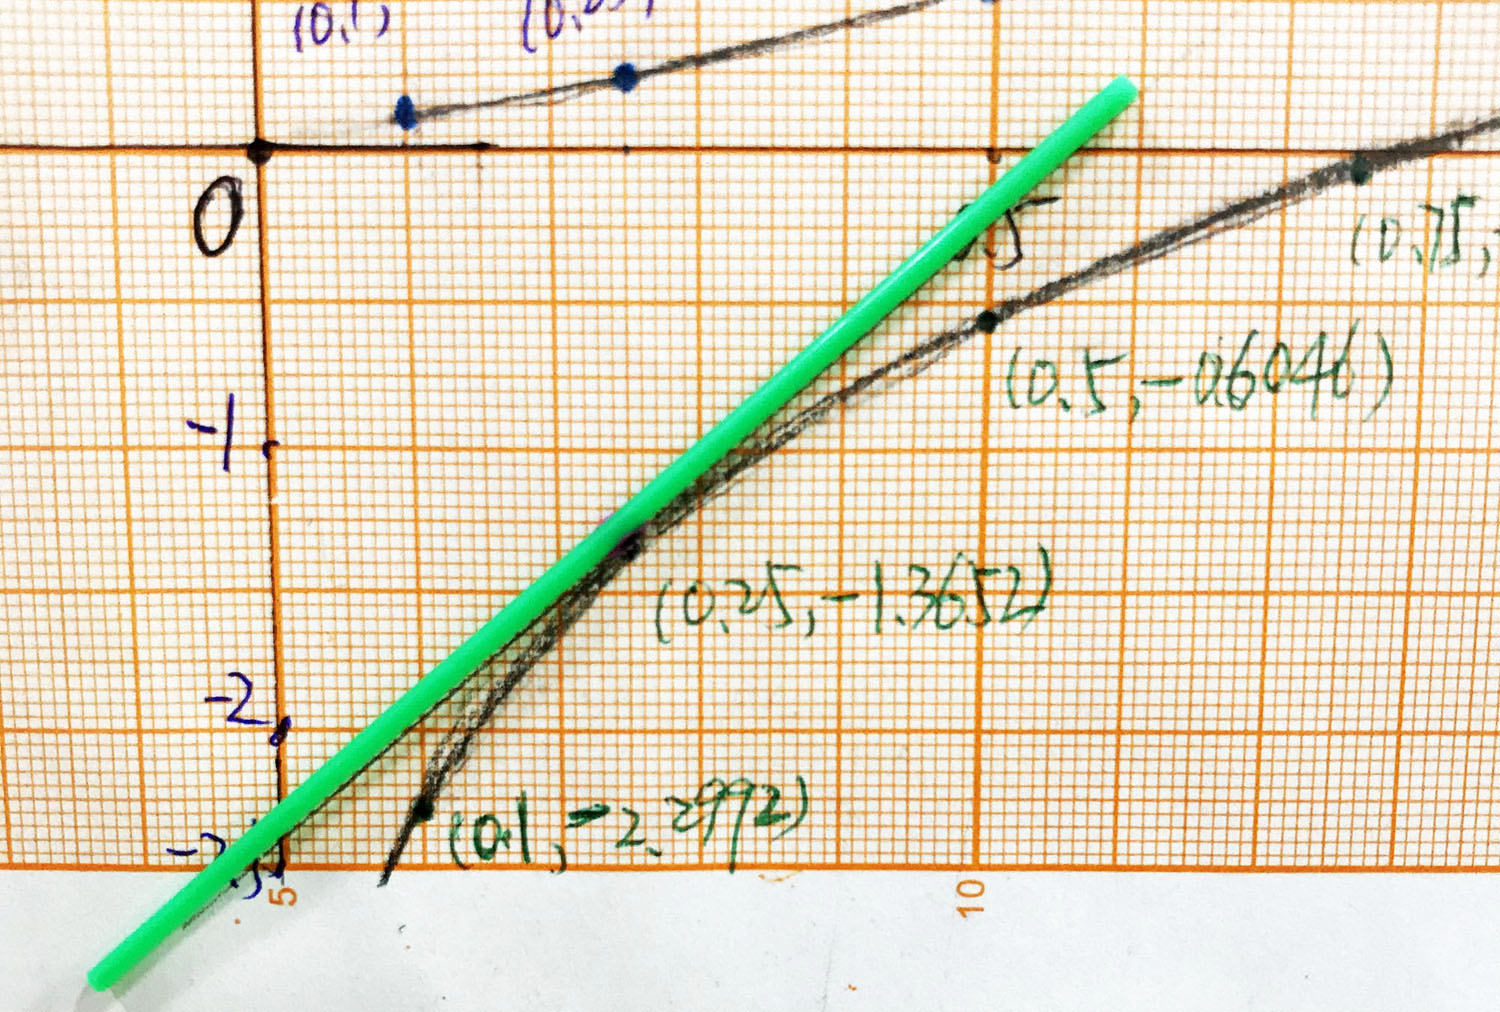 (0.1,
(0.25,
0
0.5
(0.75,
-1
(0.5, -0.6046)
(0.25, -1.3652)
-2
(0.1, -2.2992)
5
10